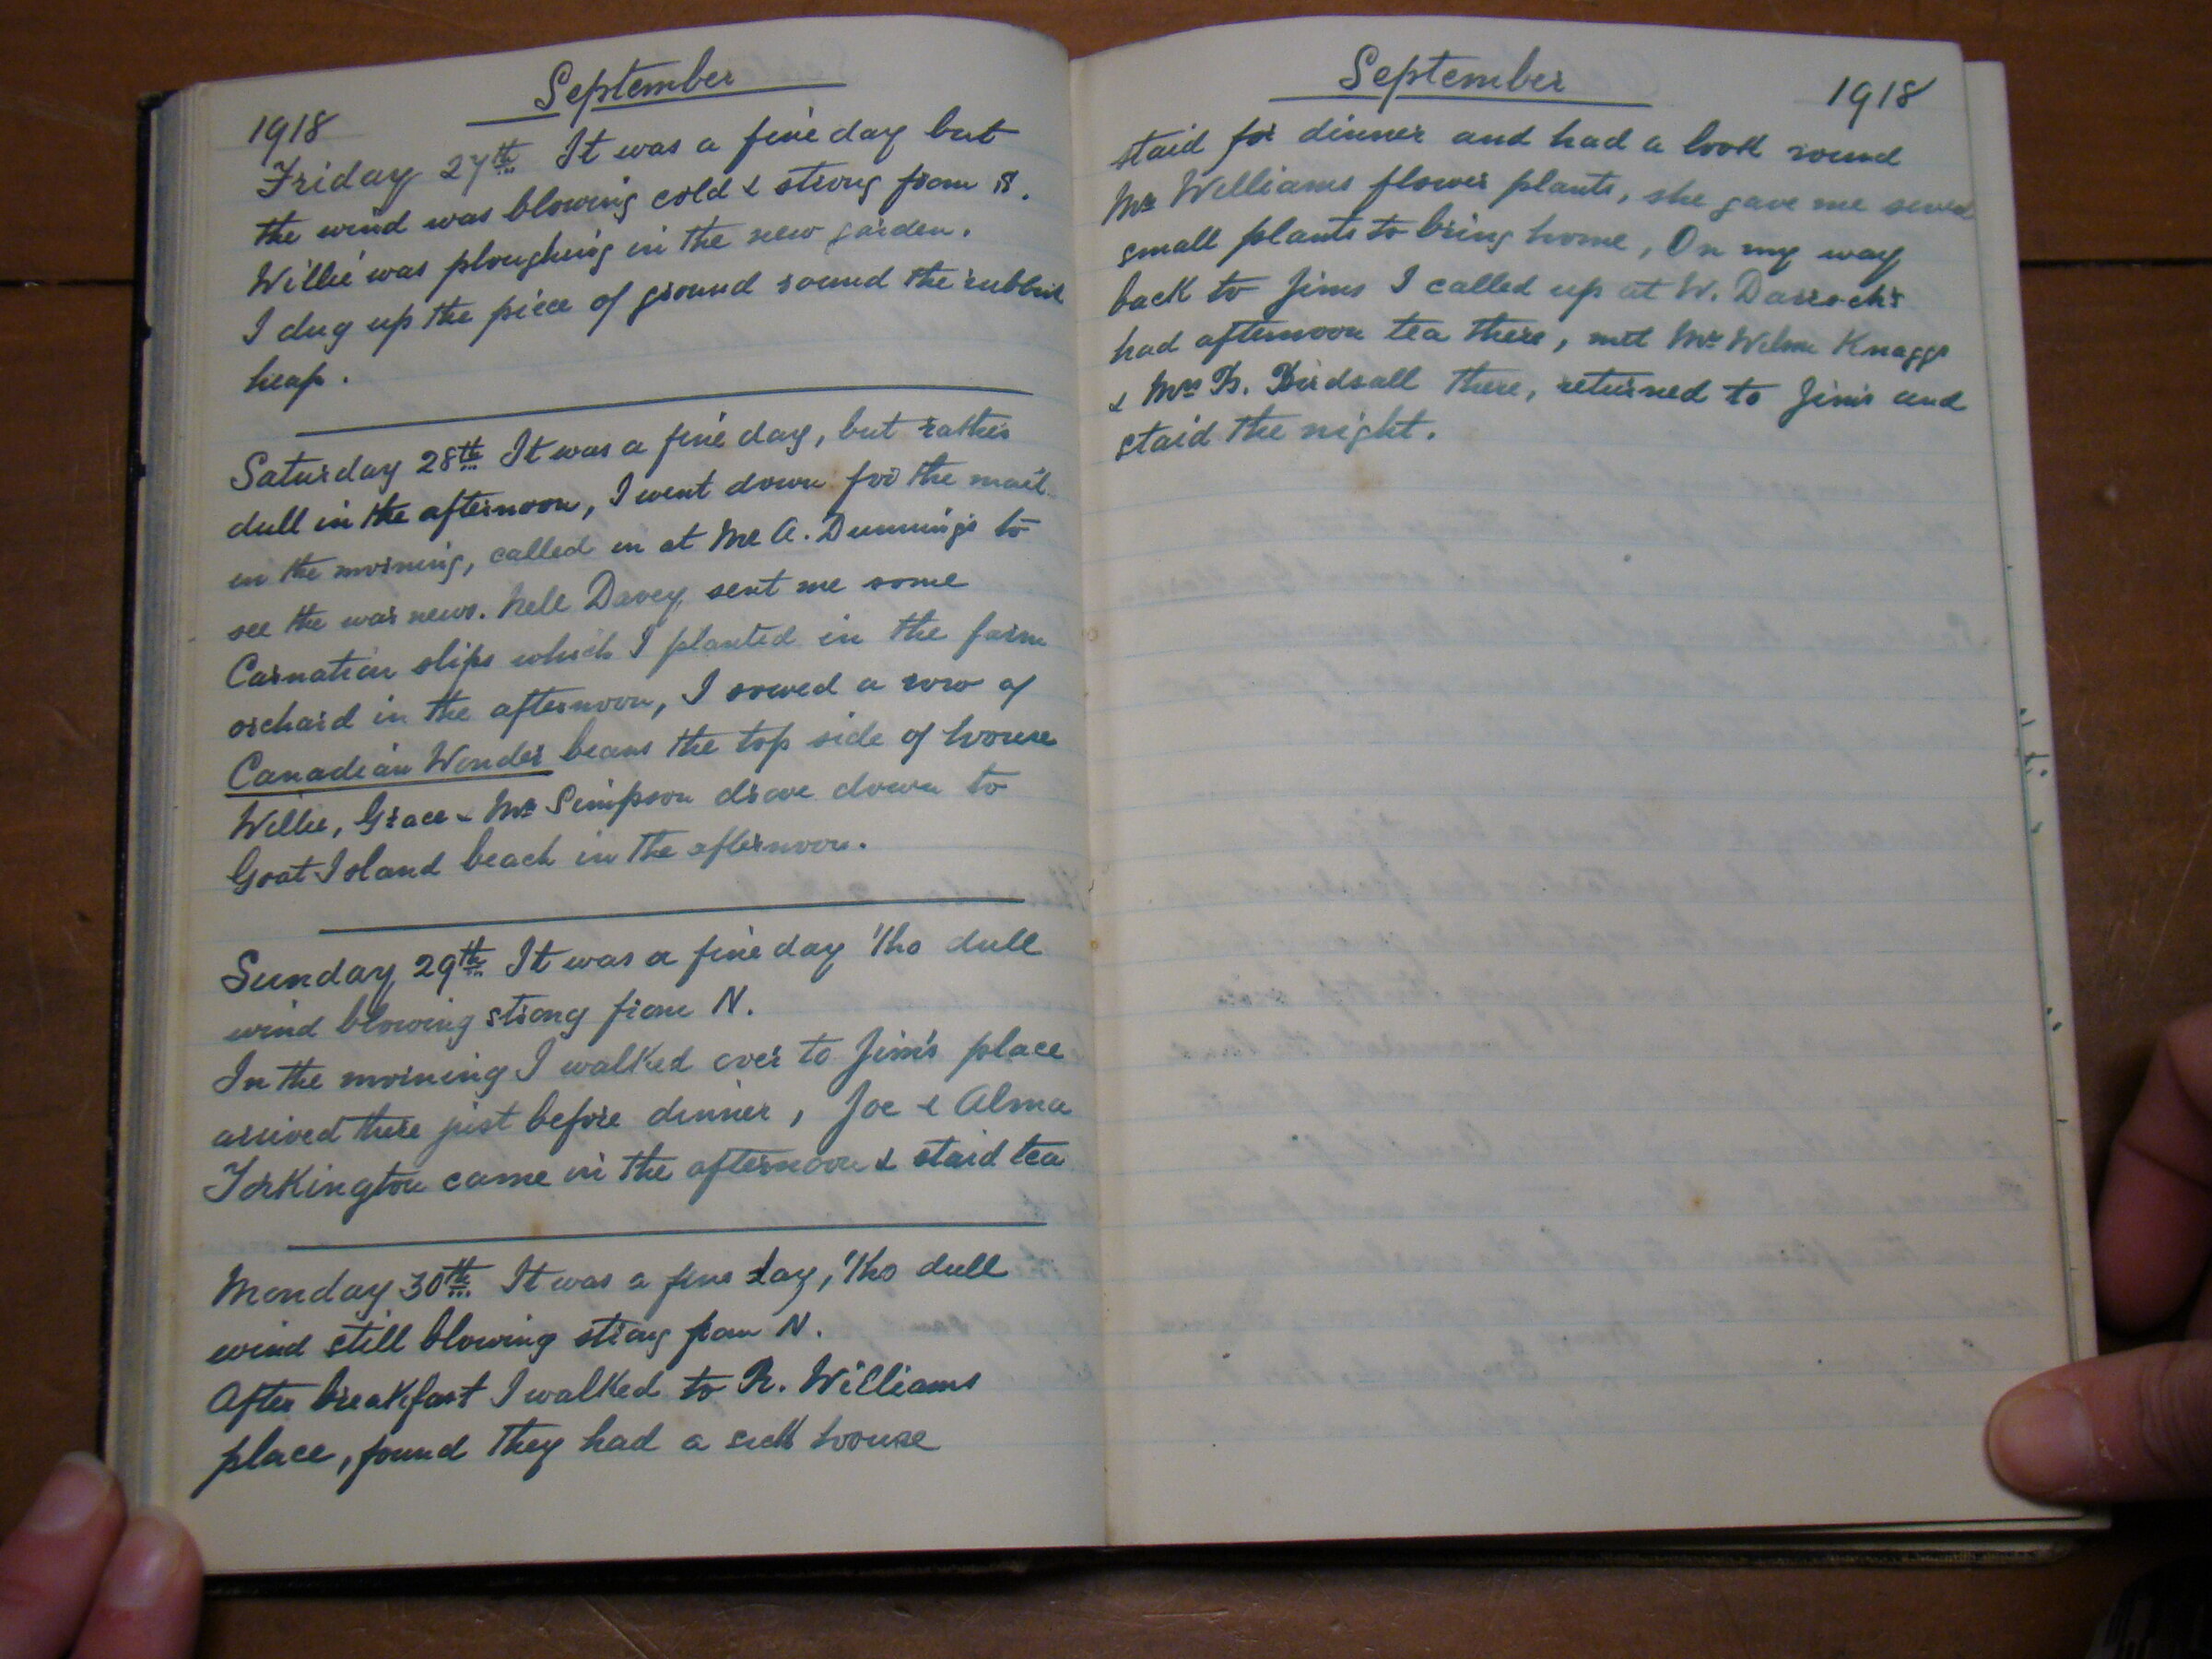 September
1918
Friday 27th It was a fine day but
the wind was blowing cold & strong from S.
Willie was ploughing in the new garden.
I dug up the piece of ground round the rubbish
heap.
Saturday 28th It was a fine day, but rather
dull in the afternoon, I went down for the mail
in the morning, called in at Mr A. Dunning's to
see the war news. Nell Davey sent me some
Carnation slips which I planted in the farm
orchard in the afternoon, I sowed a row of
Canadian Wonder beans the top side of house
Willie, Grace & Mrs Simpson drove down to
Goat Island beach in the afternoon.
Sunday 29th It was a fine day 'tho dull
wind blowing strong from N.
In the morning I walked over to Jim's place
arrived there just before dinner, Joe & Alma
Torkington came in the afternoon & staid tea
Monday 30th It was a fine day, 'tho dull
wind still blowing strong from N.
After breakfast I walked to R. Williams
place, found they had a sick house
September
1918
staid for dinner and had a look round
Mrs Williams flower plants, she gave me
small plants to bring home, On my way
back to Jims I called up at W. Darroch's
had afternoon tea there, met Mr Wilson Knaggs
& Mrs Birdsall there, returned to Jim's and
staid the night.